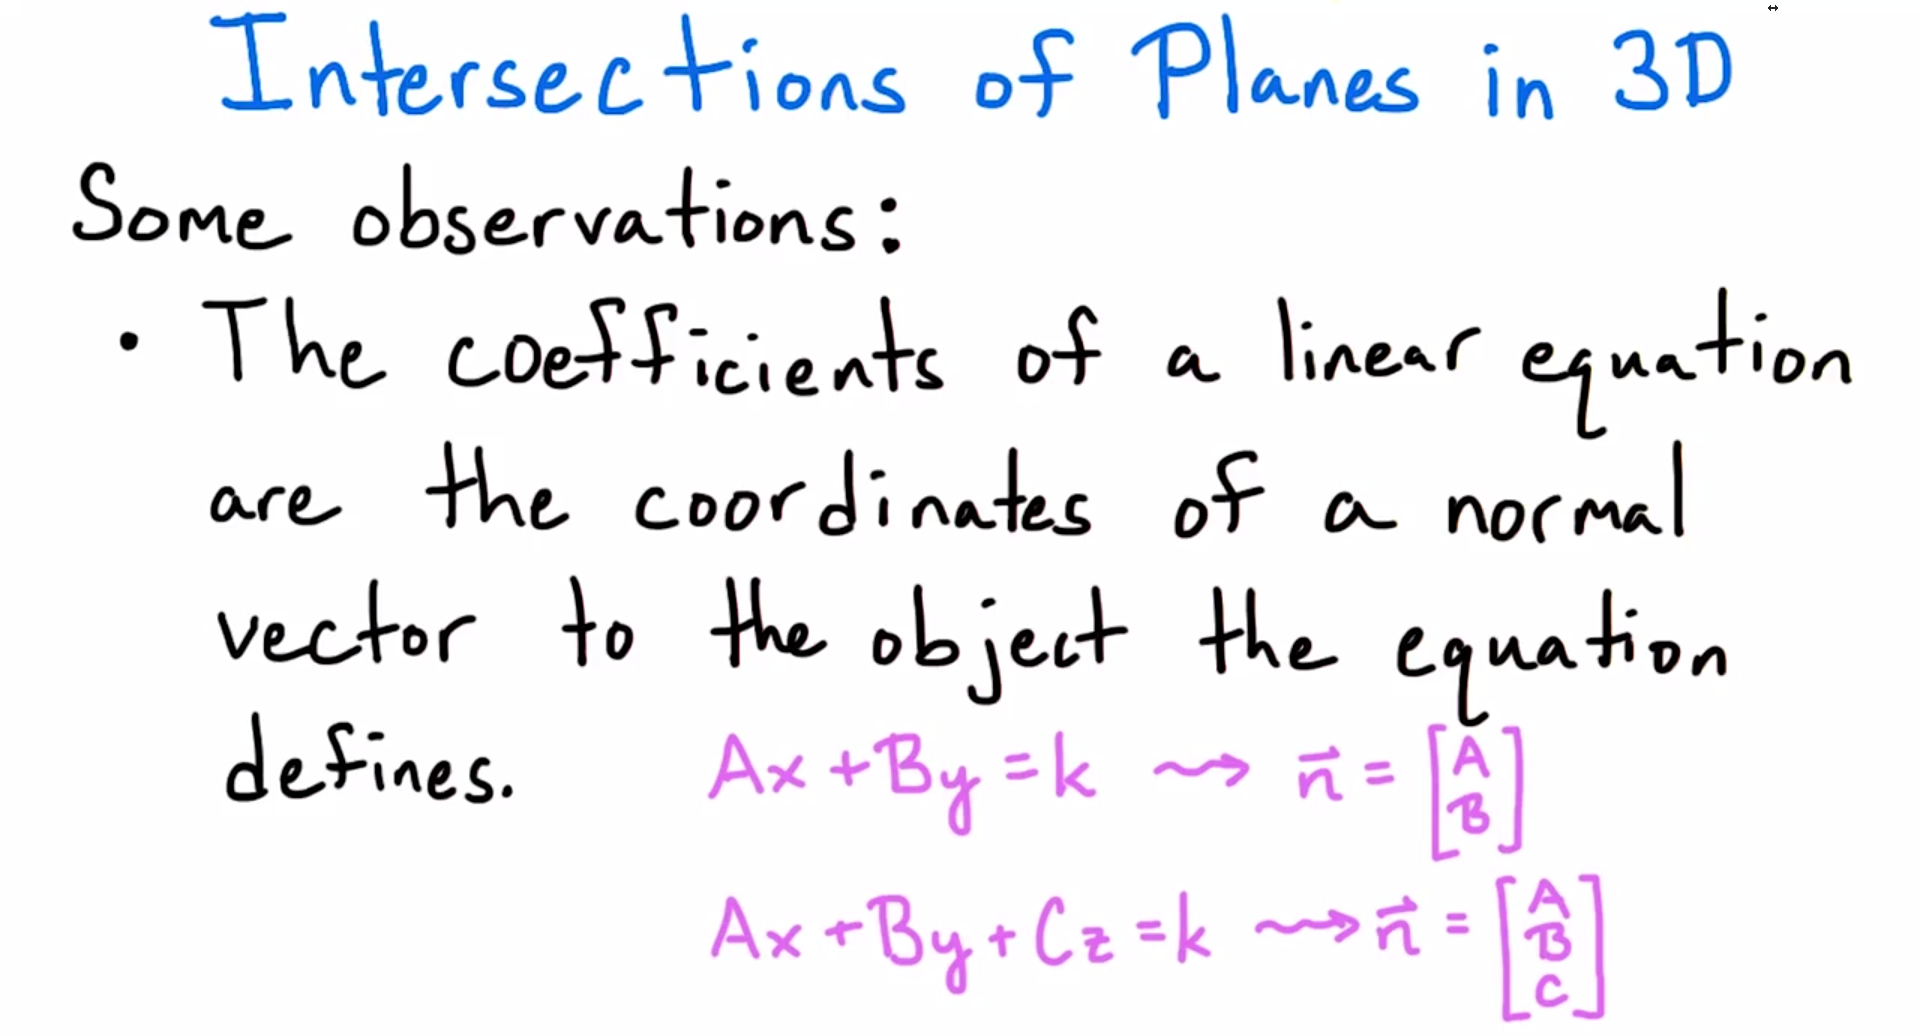 Intersections of Planes in 3D
Some observations:
• The coefficients of a linear equation
are the coordinates of a normal
vector to the object the equation
defines. Ax + By = k ⇝ n⃗ = [A B]
Ax + By + Cz = k ⇝ n⃗ = [A B C]